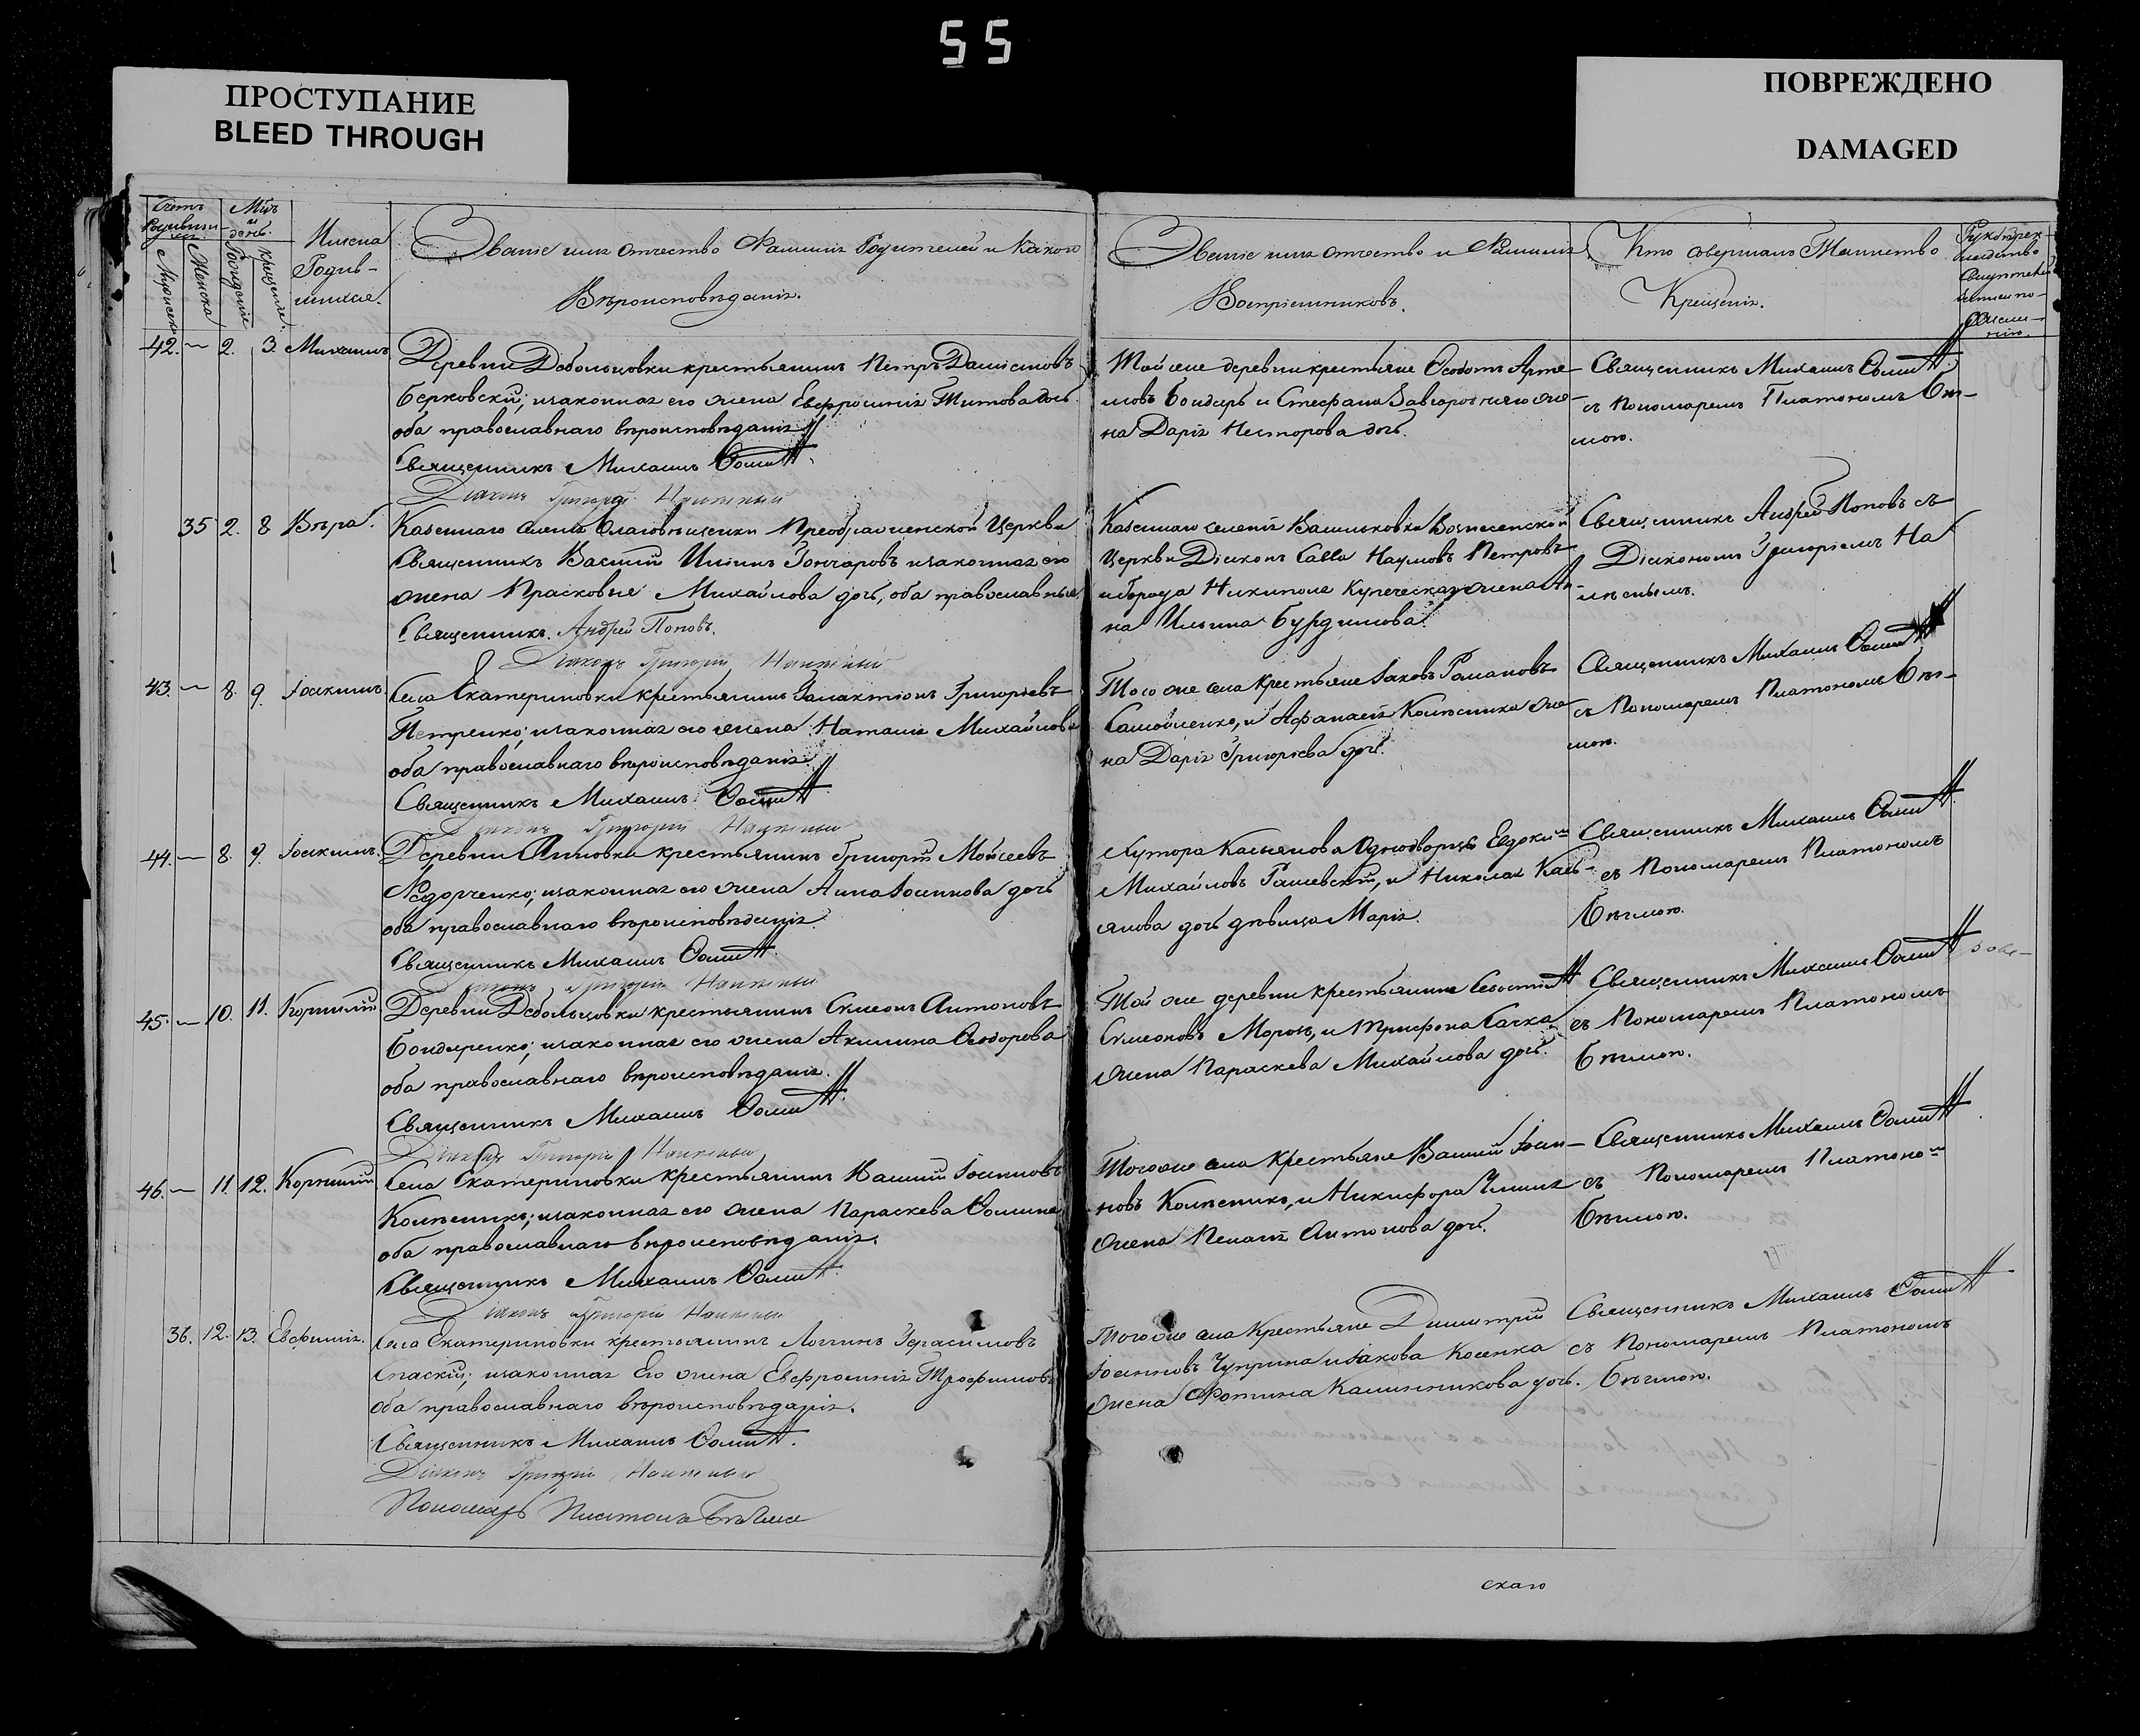 55
ПРОСТУПАНИЕ
BLEED THROUGH
ПОВРЕЖДЕНО
DAMAGED
Счетъ
Родившихся
Мужеска
Женска
Мѣсяцъ
и
день.
Рожденіе
Крещеніе.
Имена
Родив-
шихся.
Званіе имя отчество Фамилія Родителей и какого
Вѣроисповѣданія.
Званіе имя отчество и Фамилія
Воспріемниковъ.
Кто совершалъ Таинство
Крещенія.
42. — 2. 3. Михаилъ
Деревни Дебольцовки крестьянинъ Петръ Даміановъ
Берковскій; и законная его жена Евфросинія Титова дочь
оба православнаго вѣроисповѣданія
Священникъ Михаилъ
Діаконъ Григорій
Той же деревни крестьяне Ѳеодотъ Арте-
мовъ Бондарь и Стефана Завгородняго же-
на Дарія Несторова дочь.
Священникъ Михаилъ
съ Пономаремъ Платономъ Бѣл-
мою.
35 2. 8 Вѣра.
Казеннаго селенія Благовѣщенки Преображенской Церкви
Священникъ Василій Гончаровъ и законная его
жена Прасковья Михайлова дочь, оба православные.
Священникъ. Андрей Поповъ.
Діаконъ Григорій
Казеннаго селенія Васильковки Вознесенской
Церкви Діаконъ Савва Наумовъ Петровъ
и Города Никополя Купеческая жена Ан-
на Ильина
Священникъ Андрей Поповъ съ
Діакономъ Григоріемъ
43. — 8. 9. Іоакимъ.
Села Екатериновки крестьянинъ Галактіонъ Григорьевъ
Петренко; и законная его жена Наталія Михайлова
оба православнаго вѣроисповѣданія.
Священникъ Михаилъ
Діаконъ Григорій
Того же села крестьяне Іаковъ Романовъ
Самойленко, и Афанасія Колесника же
на Дарія Григорьева дочь.
Священникъ Михаилъ
съ Пономаремъ Платономъ Бѣл-
мою.
44. — 8. 9. Іоакимъ.
Деревни Анновки крестьянинъ Григорій Мойсеевъ
Ѳедорченко; и законная его жена Анна Іоаннова дочь
оба православнаго вѣроисповѣданія.
Священникъ Михаилъ
Діаконъ Григорій
Хутора Касьянова Однодворцы Евдокимъ
Михайловъ Рашевскій, и Николая Кась-
янова дочь дѣвица Марія.
Священникъ Михаилъ
съ Пономаремъ Платономъ
Бѣлмою.
45. — 10. 11. Корнилій
Деревни Дебольцовки крестьянинъ Симеонъ Антоновъ
Бондаренко; и законная его жена Акилина Ѳеодорова
оба православнаго вѣроисповѣданія.
Священникъ Михаилъ
Діаконъ Григорій
Той же деревни крестьянинъ
Симеоновъ Морозъ, и Трифона Сачка
жена Параскева Михайлова дочь.
Священникъ Михаилъ
съ Пономаремъ Платономъ
Бѣлмою.
46. — 11. 12. Корнилій
Села Екатериновки крестьянинъ Василій Іоанновъ
Колесникъ; и законная его жена Параскева Ѳомина
оба православнаго вѣроисповѣданія.
Священникъ Михаилъ
Діаконъ Григорій
Того же села крестьяне Василій Іоан-
новъ Колесникъ, и Никифора
жена Пелагія Антонова дочь.
Священникъ Михаилъ
съ Пономаремъ Платономъ
Бѣлмою.
36. 12. 13. Евфимія.
Села Екатериновки крестьянинъ Логгинъ Герасимовъ
Спаскій; и законная Его жена Евфросинія Трофимова
оба православнаго вѣроисповѣданія.
Священникъ Михаилъ
Діаконъ Григорій
Пономарь Платонъ Бѣлма
Того же села крестьяне Димитрій
Іоанновъ Чуприна и Іакова Косенка
жена Фотина Калинникова дочь.
Священникъ Михаилъ
съ Пономаремъ Платономъ
Бѣлмою.
скаго